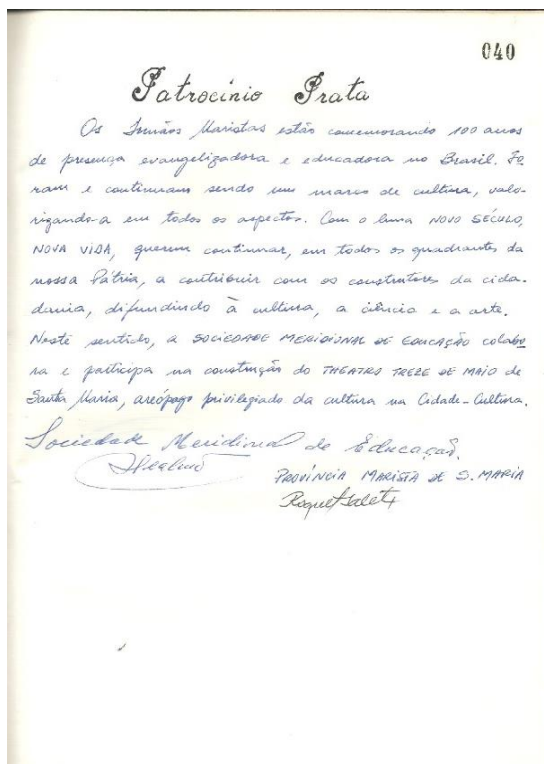 040
Patrocínio Prata
Os Irmãos Maristas estão comemorando 100 anos
de presença evangelizadora e educadora no Brasil. Fo
ram e continuam sendo um marco de cultura, valo-
rizando-a em todos os aspectos. Com o lema NOVO SÉCULO,
NOVA VIDA, querem continuar, em todos os quadrantes da
nossa Pátria, a contribuir com os construtores da cida-
dania, difundindo à cultura, a ciência e a arte.
Neste sentido, a SOCIEDADE MERIDIONAL DE EDUCAÇÃO colabo
ra e participa na construção do THEATRO TREZE DE MAIO de
Santa Maria, areópago privilegiado da cultura na Cidade-Cultura.
Sociedade Meridional de Educação.
PROVÍNCIA MARISTA DE S. MARIA